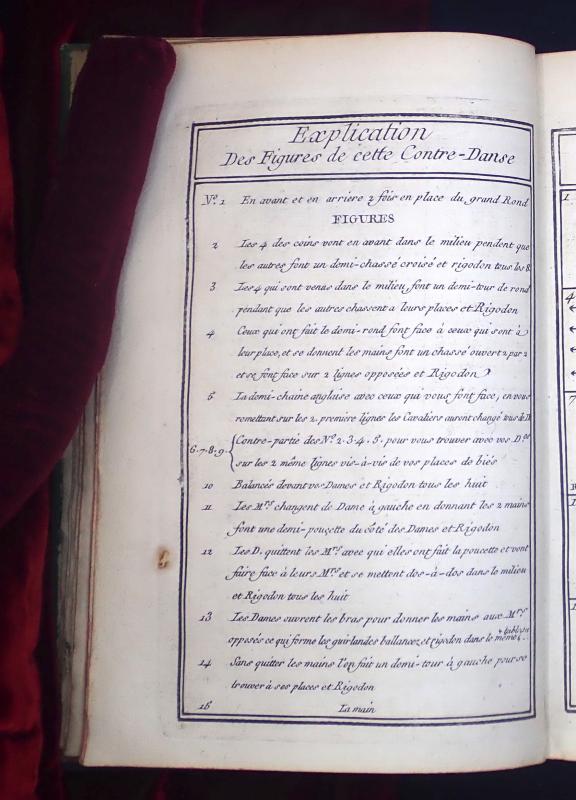 Explication
Des Figures de cette Contre-Danse
No. 1 En avant et en arriere 2 fois en place du grand Rond
FIGURES
2 Les 4 des coins vont en avant dans le milieu pendent que
les autres font un demi-chassé croisé et rigodon tous les 8.
3 Les 4 qui sont venus dans le milieu font un demi-tour de rond
pendant que les autres chassent a leurs places et Rigodon
4 Ceux qui ont fait le demi-rond font face à ceux qui sont à
leur place, et se donnent les mains font un chassé ouvert 2 par 2
et se font face sur 2 lignes opposées et Rigodon
5 La demi-chaine anglaise avec ceux qui vous font face, en vous
remettant sur les 2. premiere lignes les Cavaliers auront changé tous de D.
6.7.8.9. Contre-partie des No. 2.3.4.5. pour vous trouver avec vos D.es
sur les 2 même lignes vis-à-vis de vos places de biés
10 Balancés devant vos Dames et Rigodon tous les huit
11 Les Mrs changent de Dame à gauche en donnant les 2 mains
font une demi-pouçette du coté des Dames et Rigodon
12 Les D. quittent les Mrs avec qui elles ont fait la poucette et vont
faire face à leurs Mrs et se mettent dos-à-dos dans le milieu
et Rigodon tous les huit
13 Les Dames ouvrent les bras pour donner les mains aux Mrs
opposés ce qui forme les guirlandes ballancez et rigodon dans le même tableau
14 Sans quitter les mains l'on fait un demi-tour à gauche pour se
trouver à ses places et Rigodon
15 La main
1
4
7